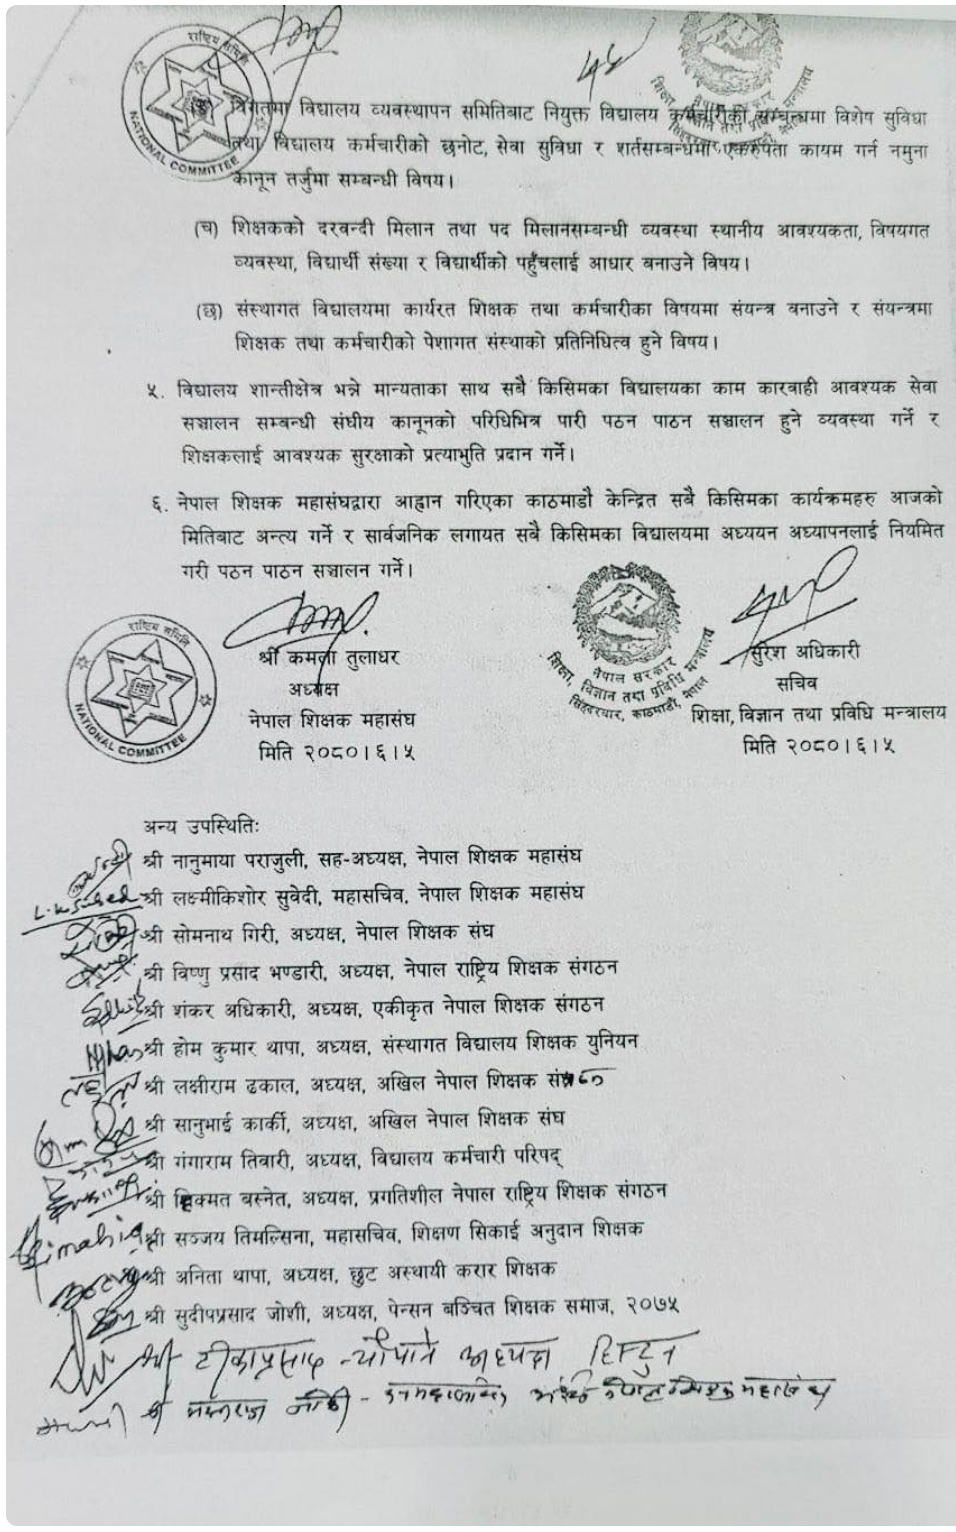 राष्ट्रिय समिति
NATIONAL COMMITTEE
नेपाल सरकार
शिक्षा, विज्ञान तथा प्रविधि मन्त्रालय
सिंहदरबार, काठमाडौं, नेपाल
विगतमा विद्यालय व्यवस्थापन समितिबाट नियुक्त विद्यालय कर्मचारीको सम्बन्धमा विशेष सुविधा
तथा विद्यालय कर्मचारीको छनोट, सेवा सुविधा र शर्तसम्बन्धमा एकरुपता कायम गर्न नमुना
कानून तर्जुमा सम्बन्धी विषय।
(च) शिक्षकको दरवन्दी मिलान तथा पद मिलानसम्बन्धी व्यवस्था स्थानीय आवश्यकता, विषयगत
व्यवस्था, विद्यार्थी संख्या र विद्यार्थीको पहुँचलाई आधार बनाउने विषय।
(छ) संस्थागत विद्यालयमा कार्यरत शिक्षक तथा कर्मचारीका विषयमा संयन्त्र बनाउने र संयन्त्रमा
शिक्षक तथा कर्मचारीको पेशागत संस्थाको प्रतिनिधित्व हुने विषय।
५. विद्यालय शान्तीक्षेत्र भन्ने मान्यताका साथ सबै किसिमका विद्यालयका काम कारवाही आवश्यक सेवा
सञ्चालन सम्बन्धी संघीय कानूनको परिधिभित्र पारी पठन पाठन सञ्चालन हुने व्यवस्था गर्ने र
शिक्षकलाई आवश्यक सुरक्षाको प्रत्याभुति प्रदान गर्ने।
६. नेपाल शिक्षक महासंघद्वारा आह्वान गरिएका काठमाडौ केन्द्रित सबै किसिमका कार्यक्रमहरु आजको
मितिबाट अन्त्य गर्ने र सार्वजनिक लगायत सबै किसिमका विद्यालयमा अध्ययन अध्यापनलाई नियमित
गरी पठन पाठन सञ्चालन गर्ने।
राष्ट्रिय समिति
NATIONAL COMMITTEE
श्री कमला तुलाधर
अध्यक्ष
नेपाल शिक्षक महासंघ
मिति २०८०।६।५
नेपाल सरकार
शिक्षा, विज्ञान तथा प्रविधि मन्त्रालय
सिंहदरबार, काठमाडौं, नेपाल
सुरेश अधिकारी
सचिव
शिक्षा, विज्ञान तथा प्रविधि मन्त्रालय
मिति २०८०।६।५
अन्य उपस्थितिः
श्री नानुमाया पराजुली, सह-अध्यक्ष, नेपाल शिक्षक महासंघ
श्री लक्ष्मीकिशोर सुवेदी, महासचिव, नेपाल शिक्षक महासंघ
श्री सोमनाथ गिरी, अध्यक्ष, नेपाल शिक्षक संघ
श्री विष्णु प्रसाद भण्डारी, अध्यक्ष, नेपाल राष्ट्रिय शिक्षक संगठन
श्री शंकर अधिकारी, अध्यक्ष, एकीकृत नेपाल शिक्षक संगठन
श्री होम कुमार थापा, अध्यक्ष, संस्थागत विद्यालय शिक्षक युनियन
श्री लक्षीराम ढकाल, अध्यक्ष, अखिल नेपाल शिक्षक
श्री सानुभाई कार्की, अध्यक्ष, अखिल नेपाल शिक्षक संघ
श्री गंगाराम तिवारी, अध्यक्ष, विद्यालय कर्मचारी परिषद्
श्री हिक्मत बस्नेत, अध्यक्ष, प्रगतिशील नेपाल राष्ट्रिय शिक्षक संगठन
श्री सञ्जय तिमल्सिना, महासचिव, शिक्षण सिकाई अनुदान शिक्षक
श्री अनिता थापा, अध्यक्ष, छुट अस्थायी करार शिक्षक
श्री सुदीपप्रसाद जोशी, अध्यक्ष, पेन्सन बञ्चित शिक्षक समाज, २०७५
श्री टीकाप्रसाद न्यौपाने अध्यक्ष
श्री नेपाल शिक्षक महासंघ